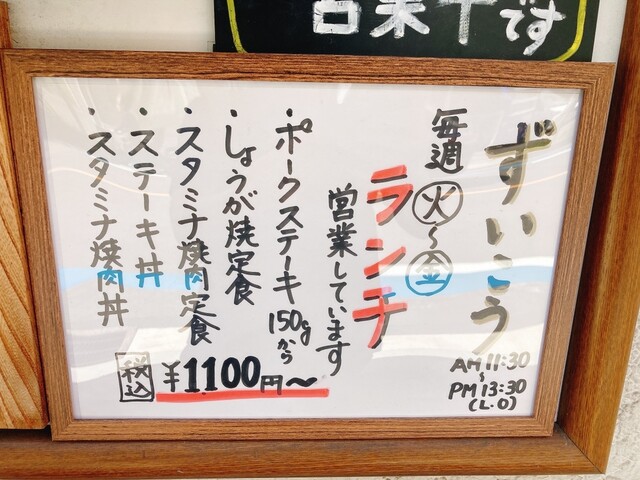 営業中です
ずいこう
AM 11:30
~
PM 13:30
(L.O)
毎週㊋~㊎
ランチ
営業しています
・ポークステーキ150gから
・しょうが焼定食
・スタミナ焼肉定食
・ステーキ丼
・スタミナ焼肉丼
税込 ¥1.100円~